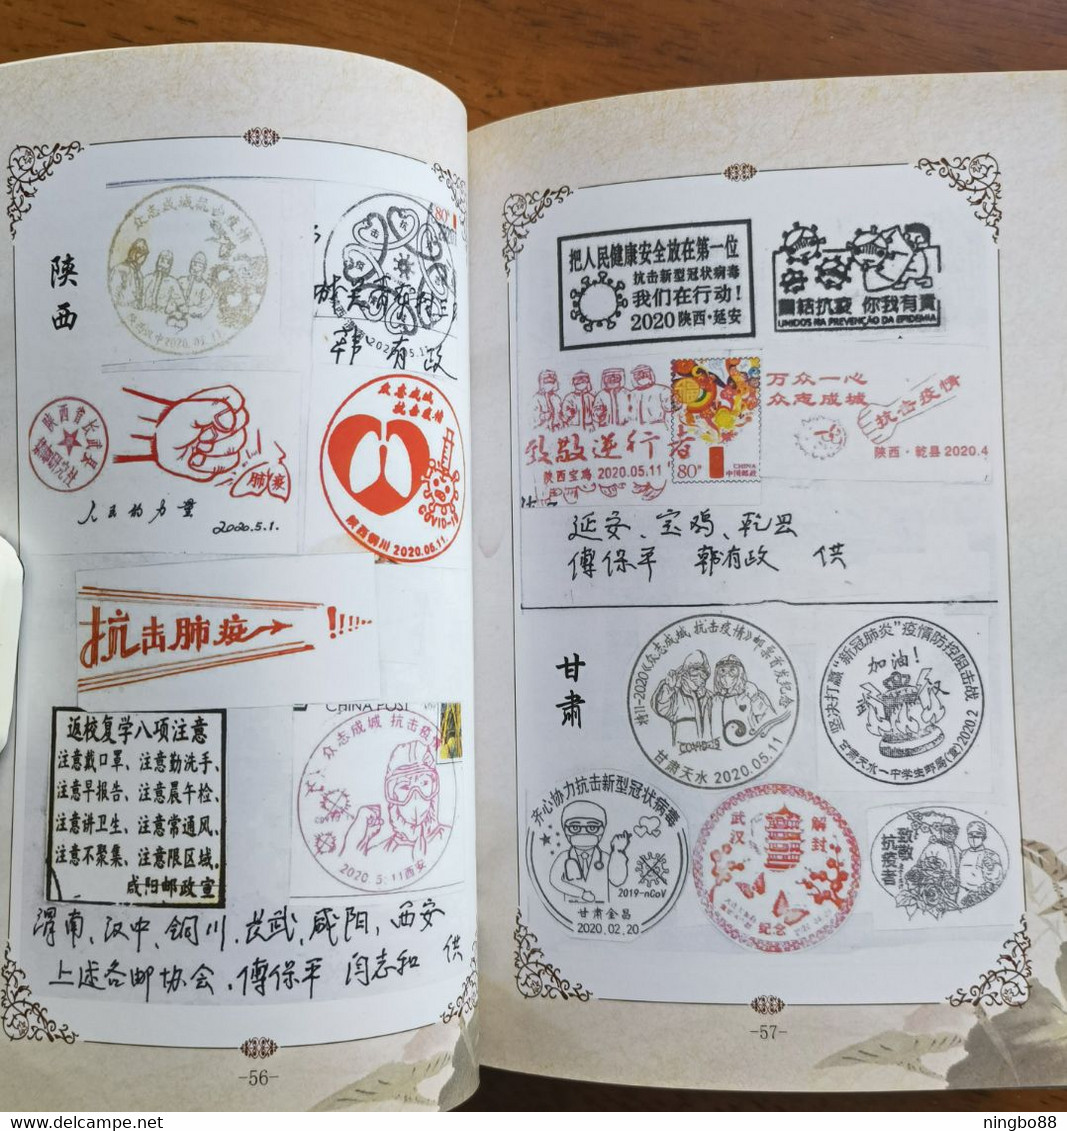 陕西
众志成城抗击疫情
80分
韩有政
陕西省长武县
肺疫
人民的力量
2020.5.1.
众志成城
抗击疫情
COVID-19
陕西铜川 2020.05.11.
抗击肺疫→!!!!!
返校复学八项注意
注意戴口罩、注意勤洗手、
注意早报告、注意晨午检、
注意讲卫生、注意常通风、
注意不聚集、注意限区域。
咸阳邮政宣
CHINA POST
众志成城 抗击疫情
2020.5.11西安
渭南、汉中、铜川、长武、咸阳、西安
上述各邮协会、傅保平 闫志和 供
-56-
把人民健康安全放在第一位
抗击新型冠状病毒
我们在行动!
2020陕西·延安
團結抗疫 你我有責
UNIDOS NA PREVENÇÃO DA EPIDEMIA
致敬逆行者
陕西宝鸡 2020.05.11
80分
CHINA
中国邮政
万众一心
众志成城
抗击疫情
陕西·乾县 2020.4
延安、宝鸡、乾县
傅保平 韩有政 供
甘肃
特11-2020《众志成城 抗击疫情》邮票首发纪念
甘肃天水 2020.05.11
坚决打赢“新冠肺炎”疫情防控阻击战
加油!
汉
甘肃天水一中学生邮局(宣)2020.2
齐心协力抗击新型冠状病毒
2019-nCoV
甘肃金昌
2020.02.20
武汉解封
纪念
致敬
抗疫
-57-
ningbo88